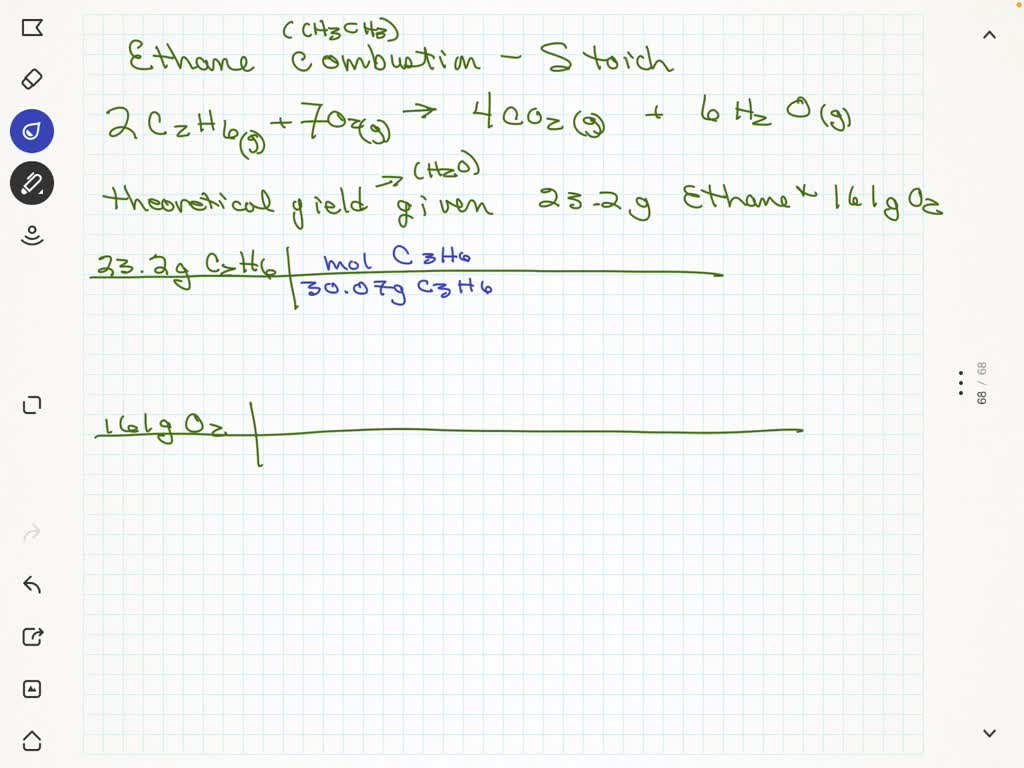 (CH3CH3)
Ethane Combustion - Stoich
2 C2H6(g) + 7O2(g) → 4CO2(g) + 6 H2O(g)
→ (H2O)
theoretical yield given 23.2g Ethane + 161g O2
23.2g C2H6 | mol C3H6
30.07g C3H6
161g O2
68 / 68